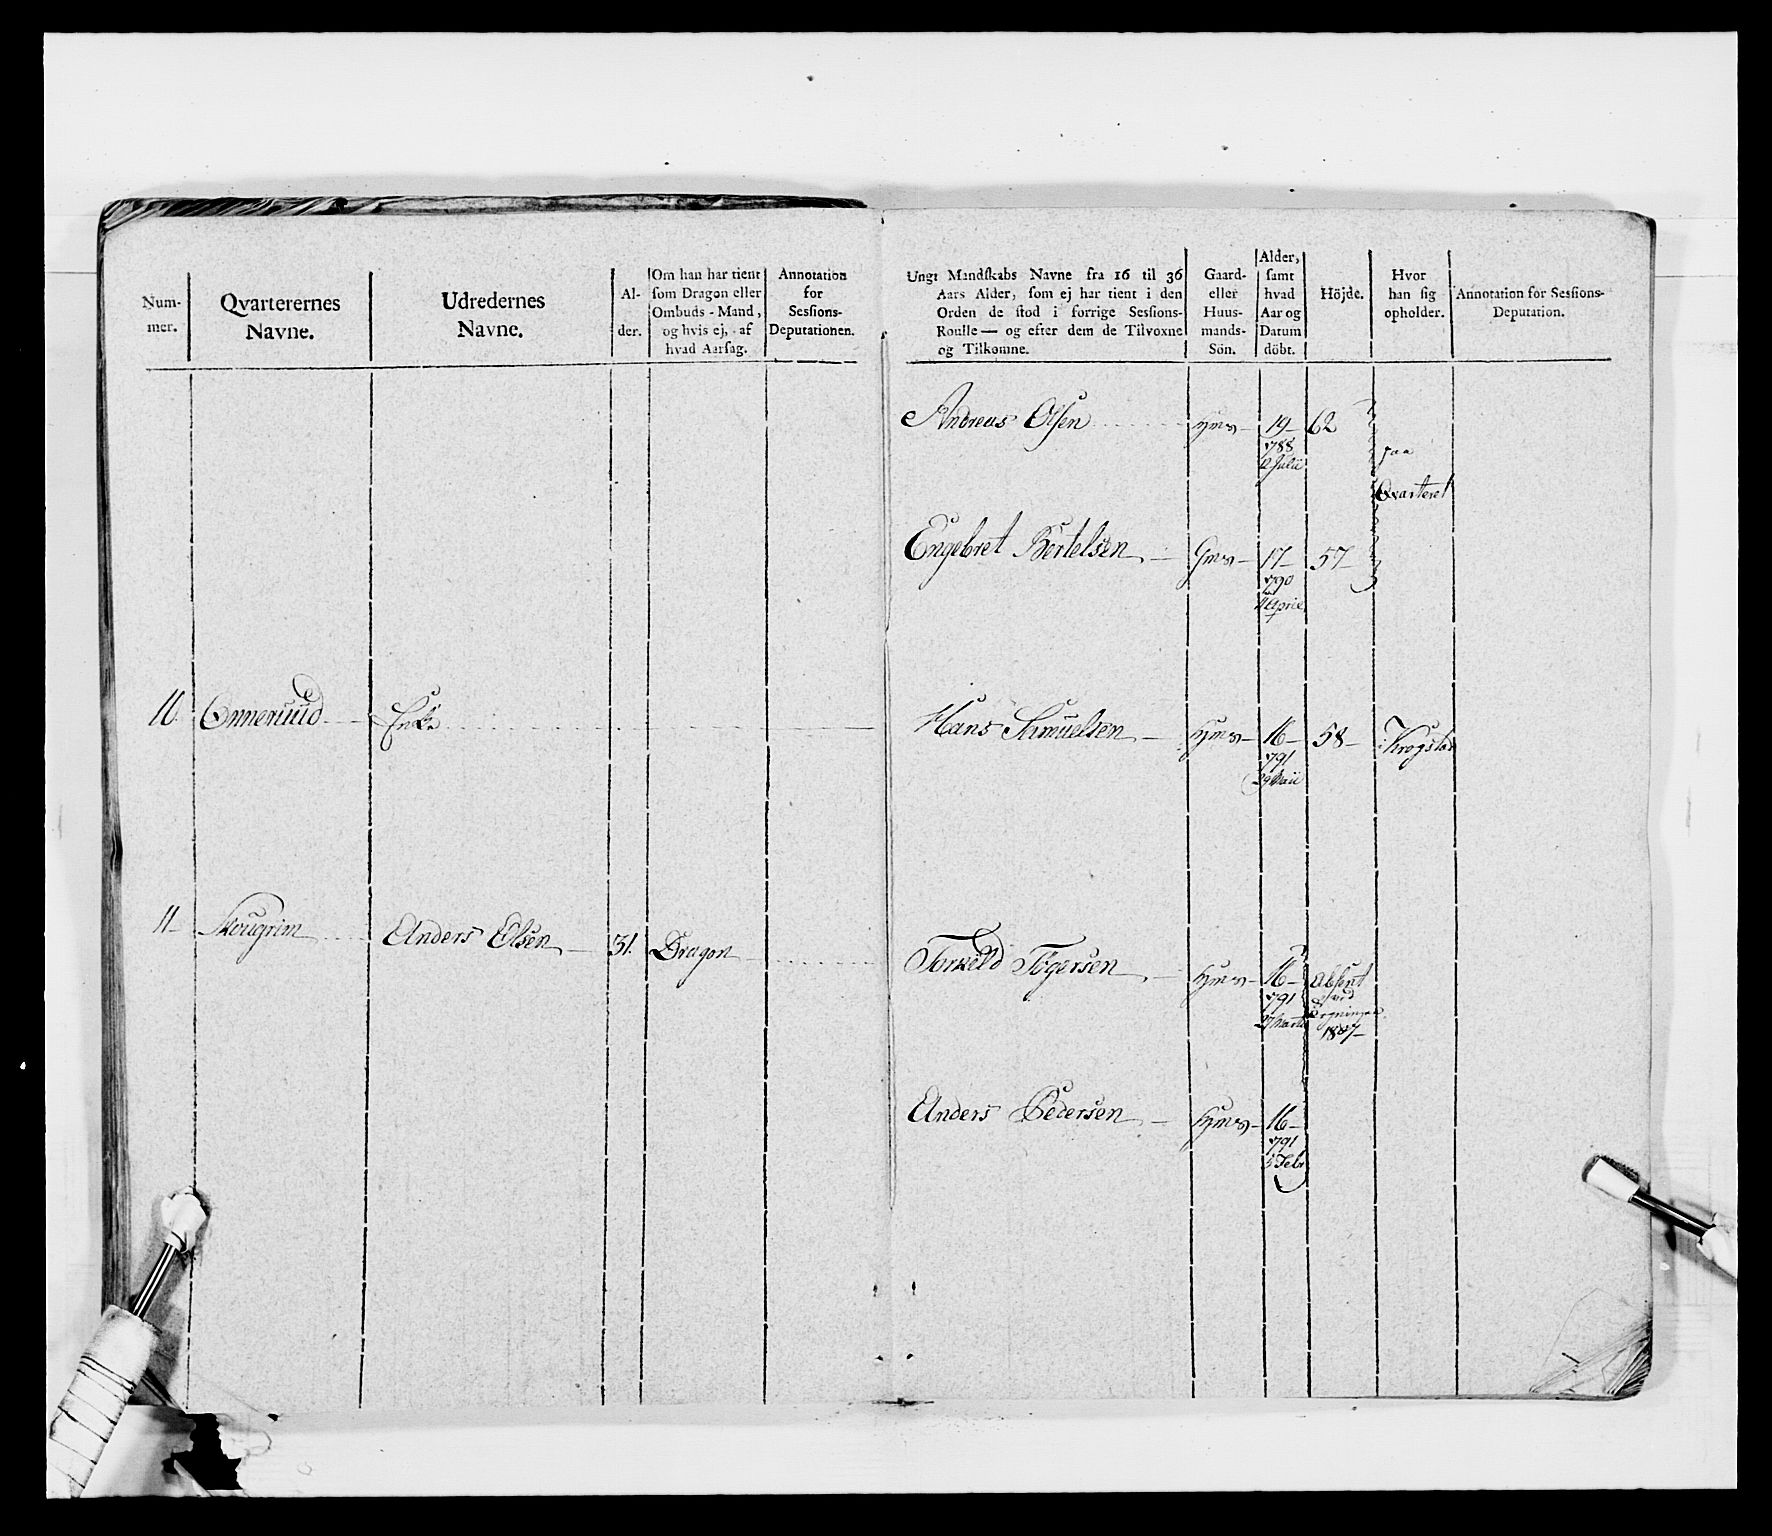 Num-
mer.
Qvarterernes
Navne.
Udredernes
Navne.
Al-
der.
Om han har tient
som Dragon eller
Ombuds-Mand,
og hvis ej, af
hvad Aarsag.
Annotation
for
Sessions-
Deputationen.
Ungt Mandskabs Navne fra 16 til 36
Aars Alder, som ej har tient i den
Orden de stod i forrige Sessions-
Roulle — og efter dem de Tilvoxne
og Tilkomne.
Gaard-
eller
Huus-
mands-
Sön.
Alder,
samt
hvad
Aar og
Datum
döbt.
Höjde.
Hvor
han sig
opholder.
Annotation for Sessions-
Deputation.
Andreas Olsen
Hms
19
788
12 Julii
62
paa
Qvarteret
Engebret Bertelsen
Gms
17
790
April
57
Onneruud
Enke
Hans Samuelsen
Hms
16
791
29 Maii
58
i Krogstad
11
Skougrim
Anders Olsen
31.
Dragon
Torkeld Togersen
Hms
16
791
27 Marts
Absent
ved
1807
Anders Pedersen
Hms
16
791
5 Febr